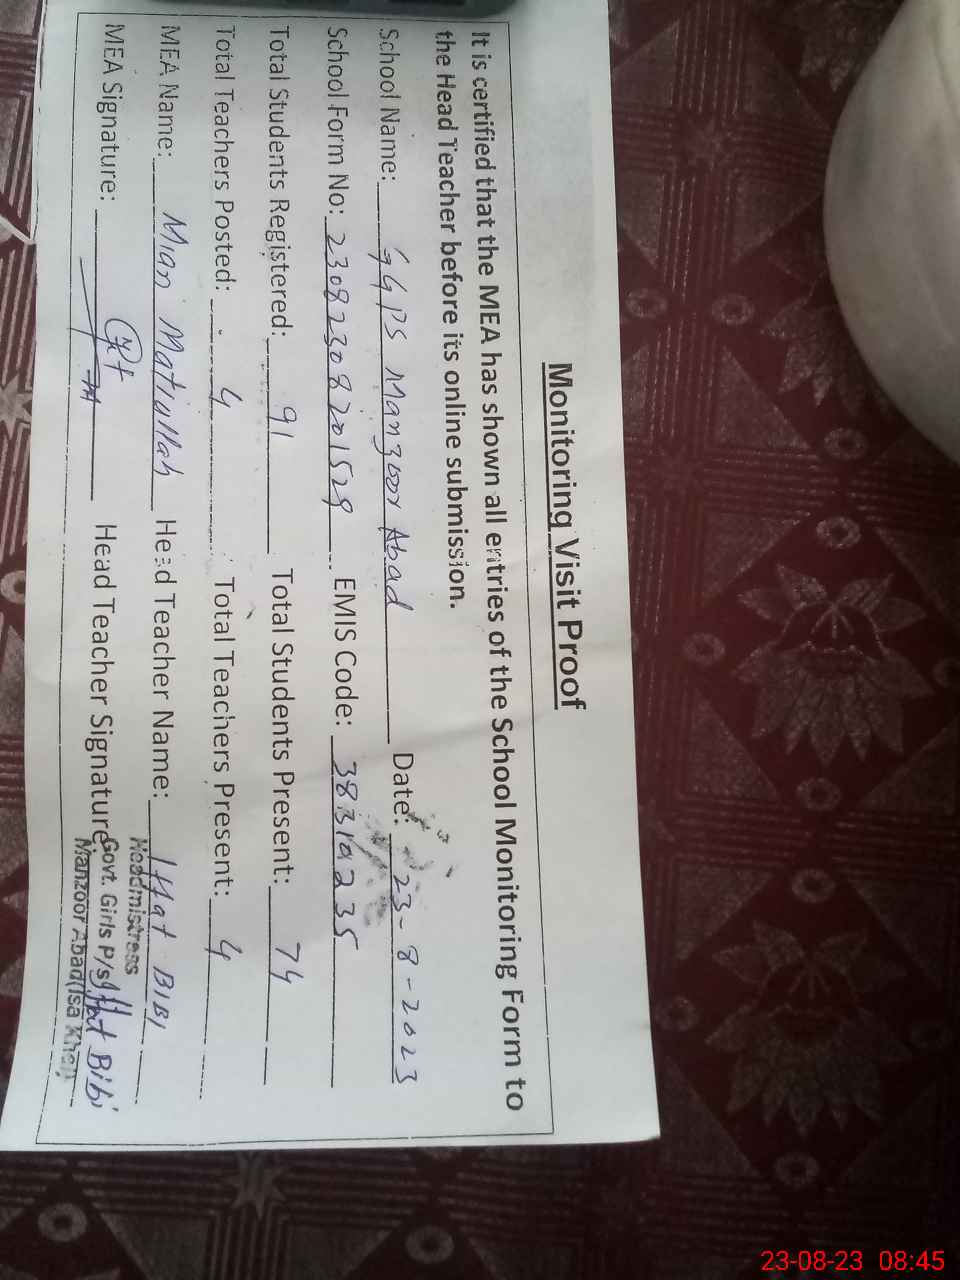 Monitoring Visit Proof
It is certified that the MEA has shown all entries of the School Monitoring Form to
the Head Teacher before its online submission.
School Name: GGPS Manzoor Abad Date: 23-8-2023
School Form No: 23082308201529 EMIS Code: 38310235
Total Students Registered: 91 Total Students Present: 74
Total Teachers Posted: 4 Total Teachers Present: 4
MEA Name: Mian Matiullah Head Teacher Name: Iffat BIBI
MEA Signature: Head Teacher Signature: Iffat Bibi
Headmistress
Govt. Girls P/s
Manzoor Abad (Isa Khel)
23-08-23 08:45